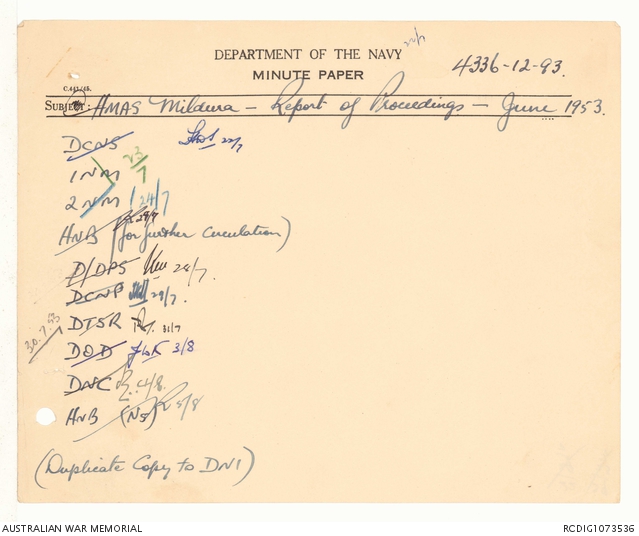 DEPARTMENT OF THE NAVY
22/7
MINUTE PAPER
4336-12-93.
C.441/48.
SUBJECT: HMAS Mildura — Report of Proceedings — June 1953.
DCNS 22/7
1NM 23/7
2NM 24/7
HNB (for further Circulation) 29/7
D/DPS 28/7.
DCNP 29/7.
30.7.53
DTSR 31/7
DOD 3/8
DNC 4/8.
HNB (NS) 5/8
(Duplicate Copy to DNI)
AUSTRALIAN WAR MEMORIAL
RCDIG1073536